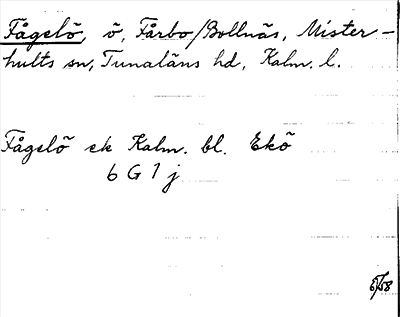 Fågelö, ö, Fårbo/Bollnäs, Mister-
hults sn, Tunaläns hd, Kalm. l.
Fågelö ek Kalm. bl. Ekö
6 G 1 j
5/58